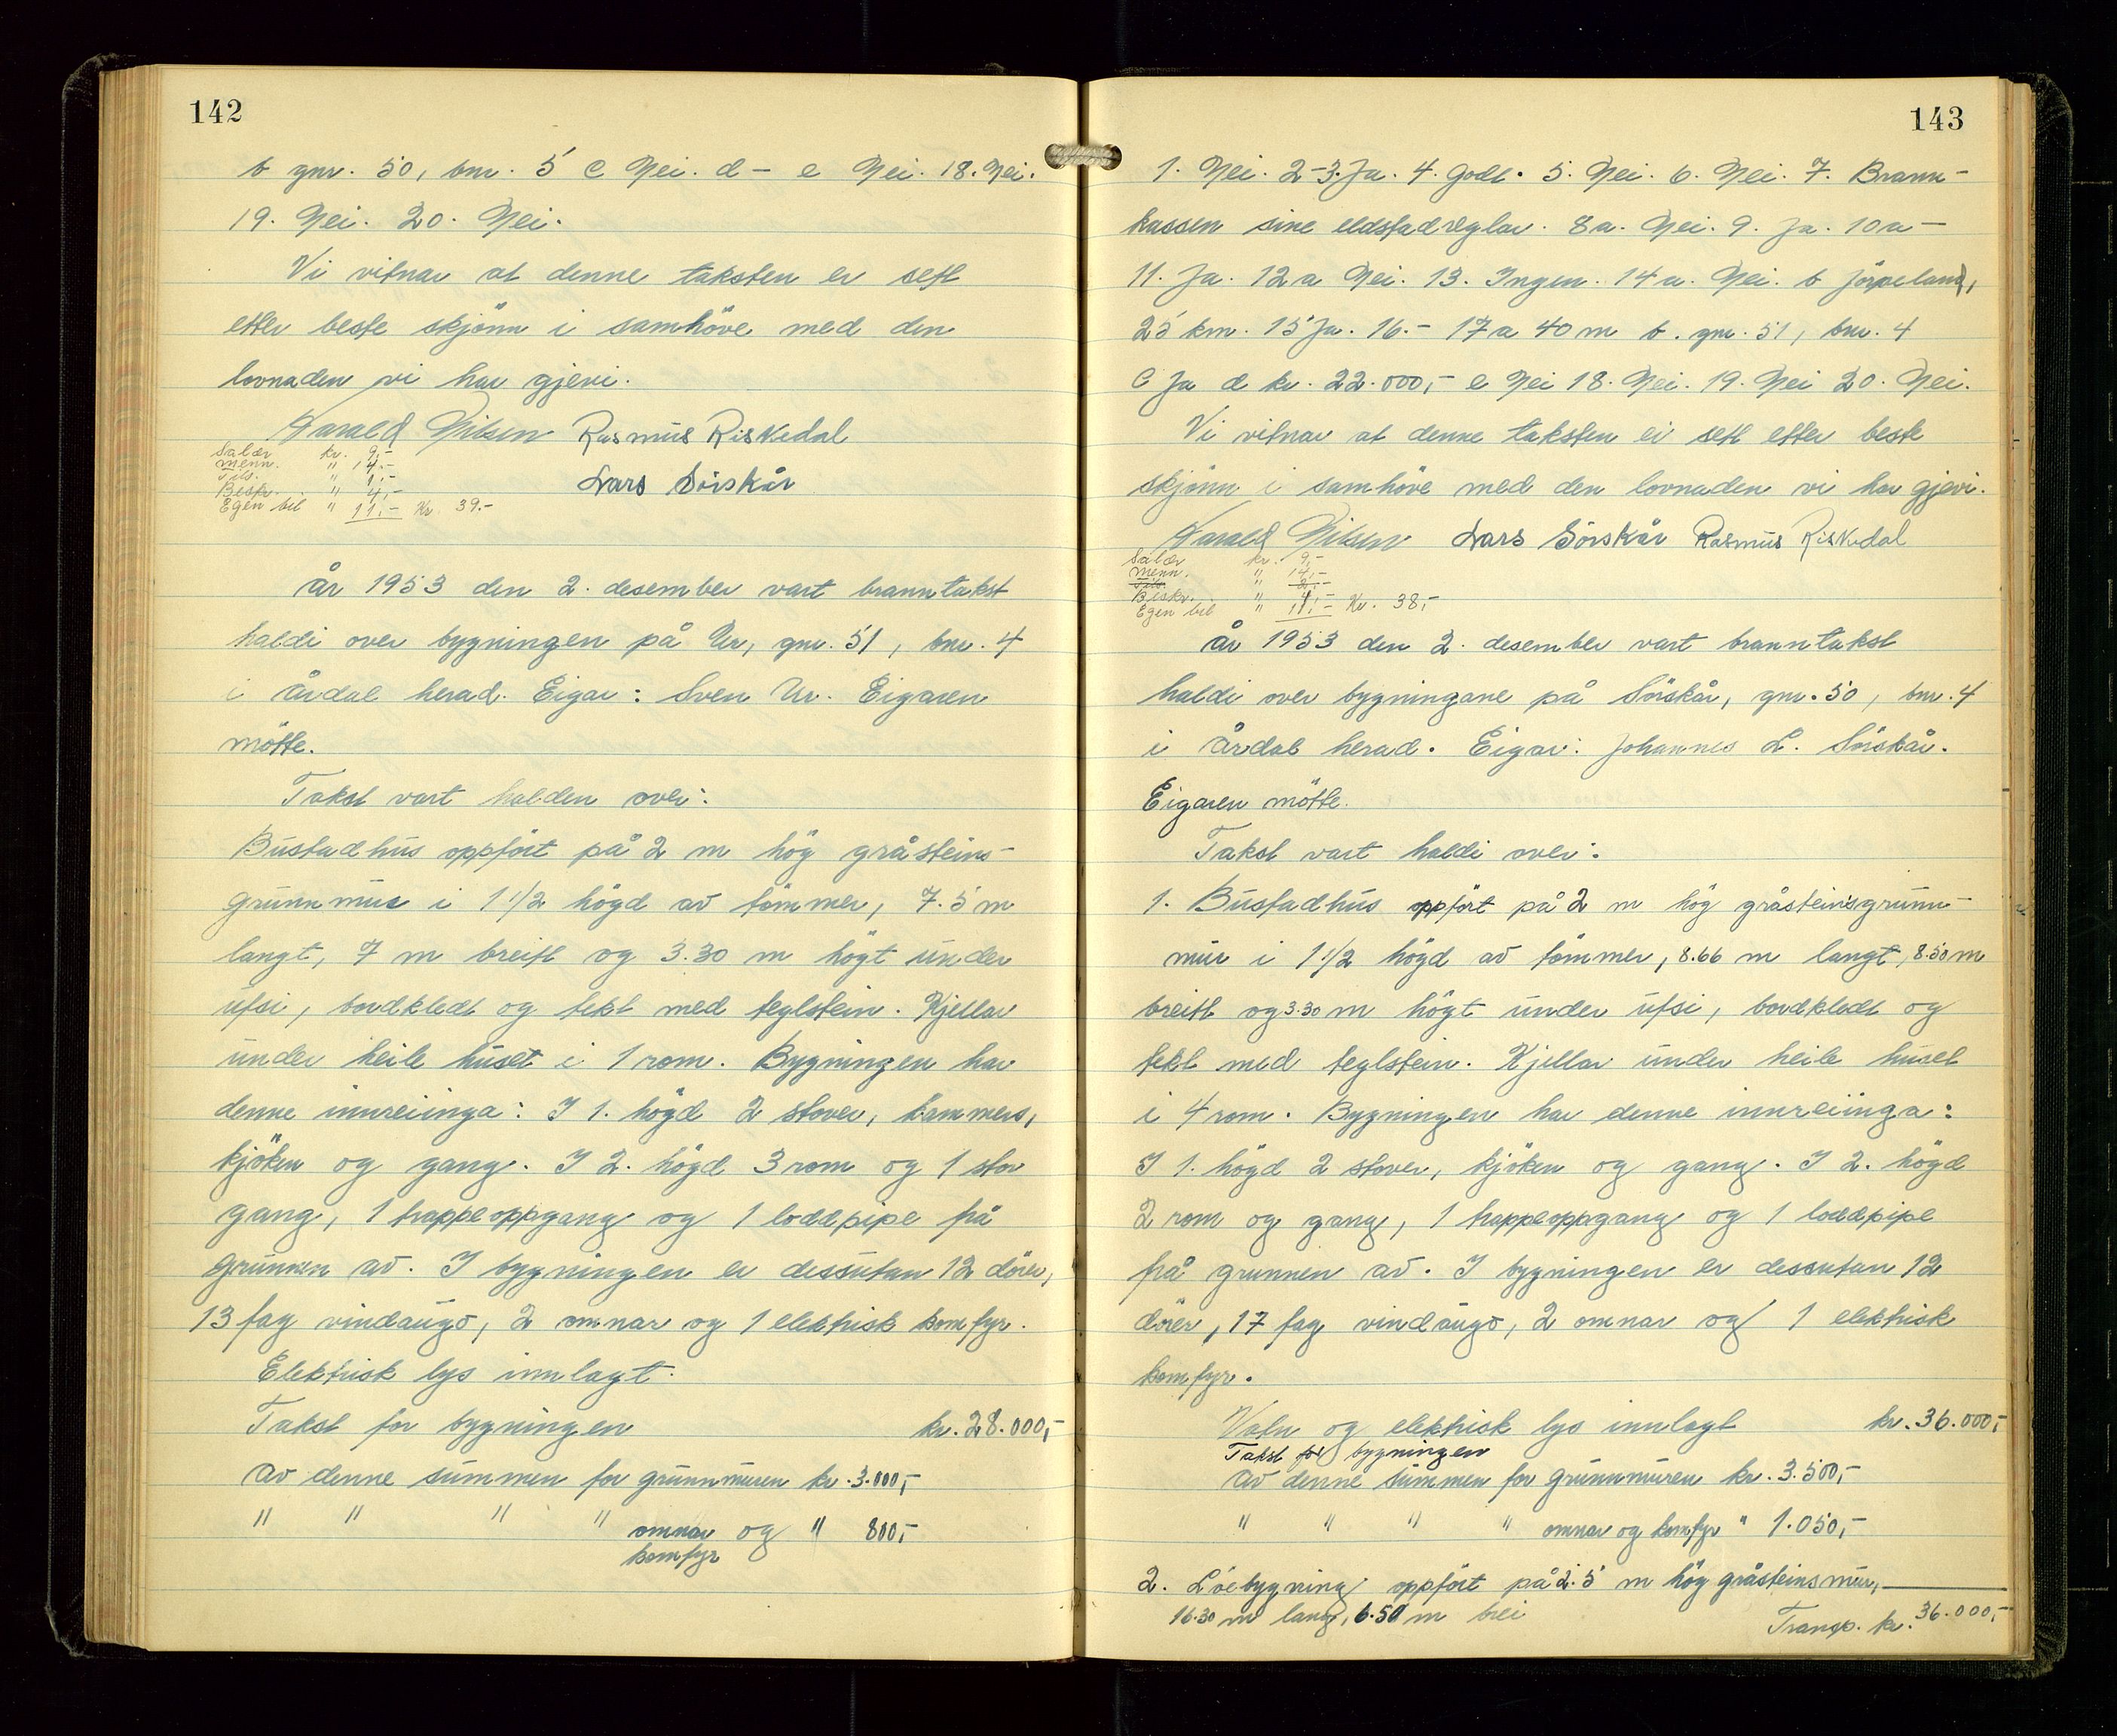 142
b gnr. 50, bnr. 5 c Nei. d - e Nei. 18. Nei.
19. Nei. 20. Nei.
Vi vitnar at denne taksten er sett
etter beste skjönn i samhöve med den
lovnaden vi har gjevi.
Harald Nilsen Rasmus Riskedal
Salær kr. 9,-
menn. " 14,-
Tils. " 1,-
Beskr. " 4,-
Lars Sörskår
Egen bil " 11,- Kr. 39.-
År 1953 den 2. desember vart branntakst
haldi over bygningen på Ur, gnr. 51, bnr. 4
i Årdal herad. Eigar: Sven Ur. Eigaren
mötte.
Takst vart halden over:
Bustadhus oppfört på 2 m hög gråsteins-
grunnmur i 1 1/2 högd av tömmer, 7.5 m
langt, 7 m breitt og 3.30 m högt under
ufsi, bordkledt og tekt med teglstein. Kjellar
under heile huset i 1 rom. Bygningen har
denne innreiinga: I 1. högd 2 stover, kammers,
kjöken og gang. I 2. högd 3 rom og 1 stor
gang, 1 trappeoppgang og 1 loddpipe frå
grunnen av. I bygningen er dessutan 12 dörer,
13 fag vindaugo, 2 omnar og 1 elektrisk komfyr.
Elektrisk lys innlagt.
Takst for bygningen kr. 28.000,-
Av denne summen for grunnmuren kr. 3.000,-
" " " " omnar og " 800,-
komfyr
143
1. Nei. 2-3. Ja. 4. Godt. 5. Nei. 6. Nei. 7. Brann-
kassen sine eldstadreglar. 8a. Nei. 9. Ja. 10a -
11. Ja. 12a Nei. 13. Ingen. 14a. Nei. b Jörpeland,
25 km. 15 Ja. 16. - 17a 40 m b. gnr. 51, bnr. 4
c Ja d kr. 22.000,- e Nei 18. Nei. 19. Nei 20. Nei.
Vi vitnar at denne taksten er sett etter beste
skjönn i samhöve med den lovnaden vi har gjevi.
Harald Nilsen Lars Sörskår Rasmus Riskedal
Salær kr. 9,-
menn. " 14,-
Tils. "
Beskr. " 4,-
Egen bil " 11,- Kr. 38,-
År 1953 den 2. desember vart branntakst
haldi over bygningane på Sörskår, gnr. 50, bnr. 4
i Årdal herad. Eigar: Johannes L. Sörskår.
Eigaren mötte.
Takst vart haldi over:
1. Bustadhus oppfört på 2 m hög gråsteinsgrunn-
mur i 1 1/2 högd av tömmer, 8.66 m langt, 8.50 m
breitt og 3.30 m högt under ufsi, bordkledt og
tekt med teglstein. Kjellar under heile huset
i 4 rom. Bygningen har denne innreiinga:
I 1. högd 2 stover, kjöken og gang. I 2. högd
2 rom og gang, 1 trappeoppgang og 1 loddpipe
frå grunnen av. I bygningen er dessutan 12
dörer, 17 fag vindaugo, 2 omnar og 1 elektrisk
komfyr.
Vatn og elektrisk lys innlagt kr. 36.000,-
Takst for bygningen
Av denne summen for grunnmuren kr. 3.500,-
" " " " omnar og komfyr " 1.050,-
2. Löebygning oppfört på 2.5 m hög gråsteinsmur,
16.30 m lang, 6.50 m brei
Transp. kr. 36.000,-